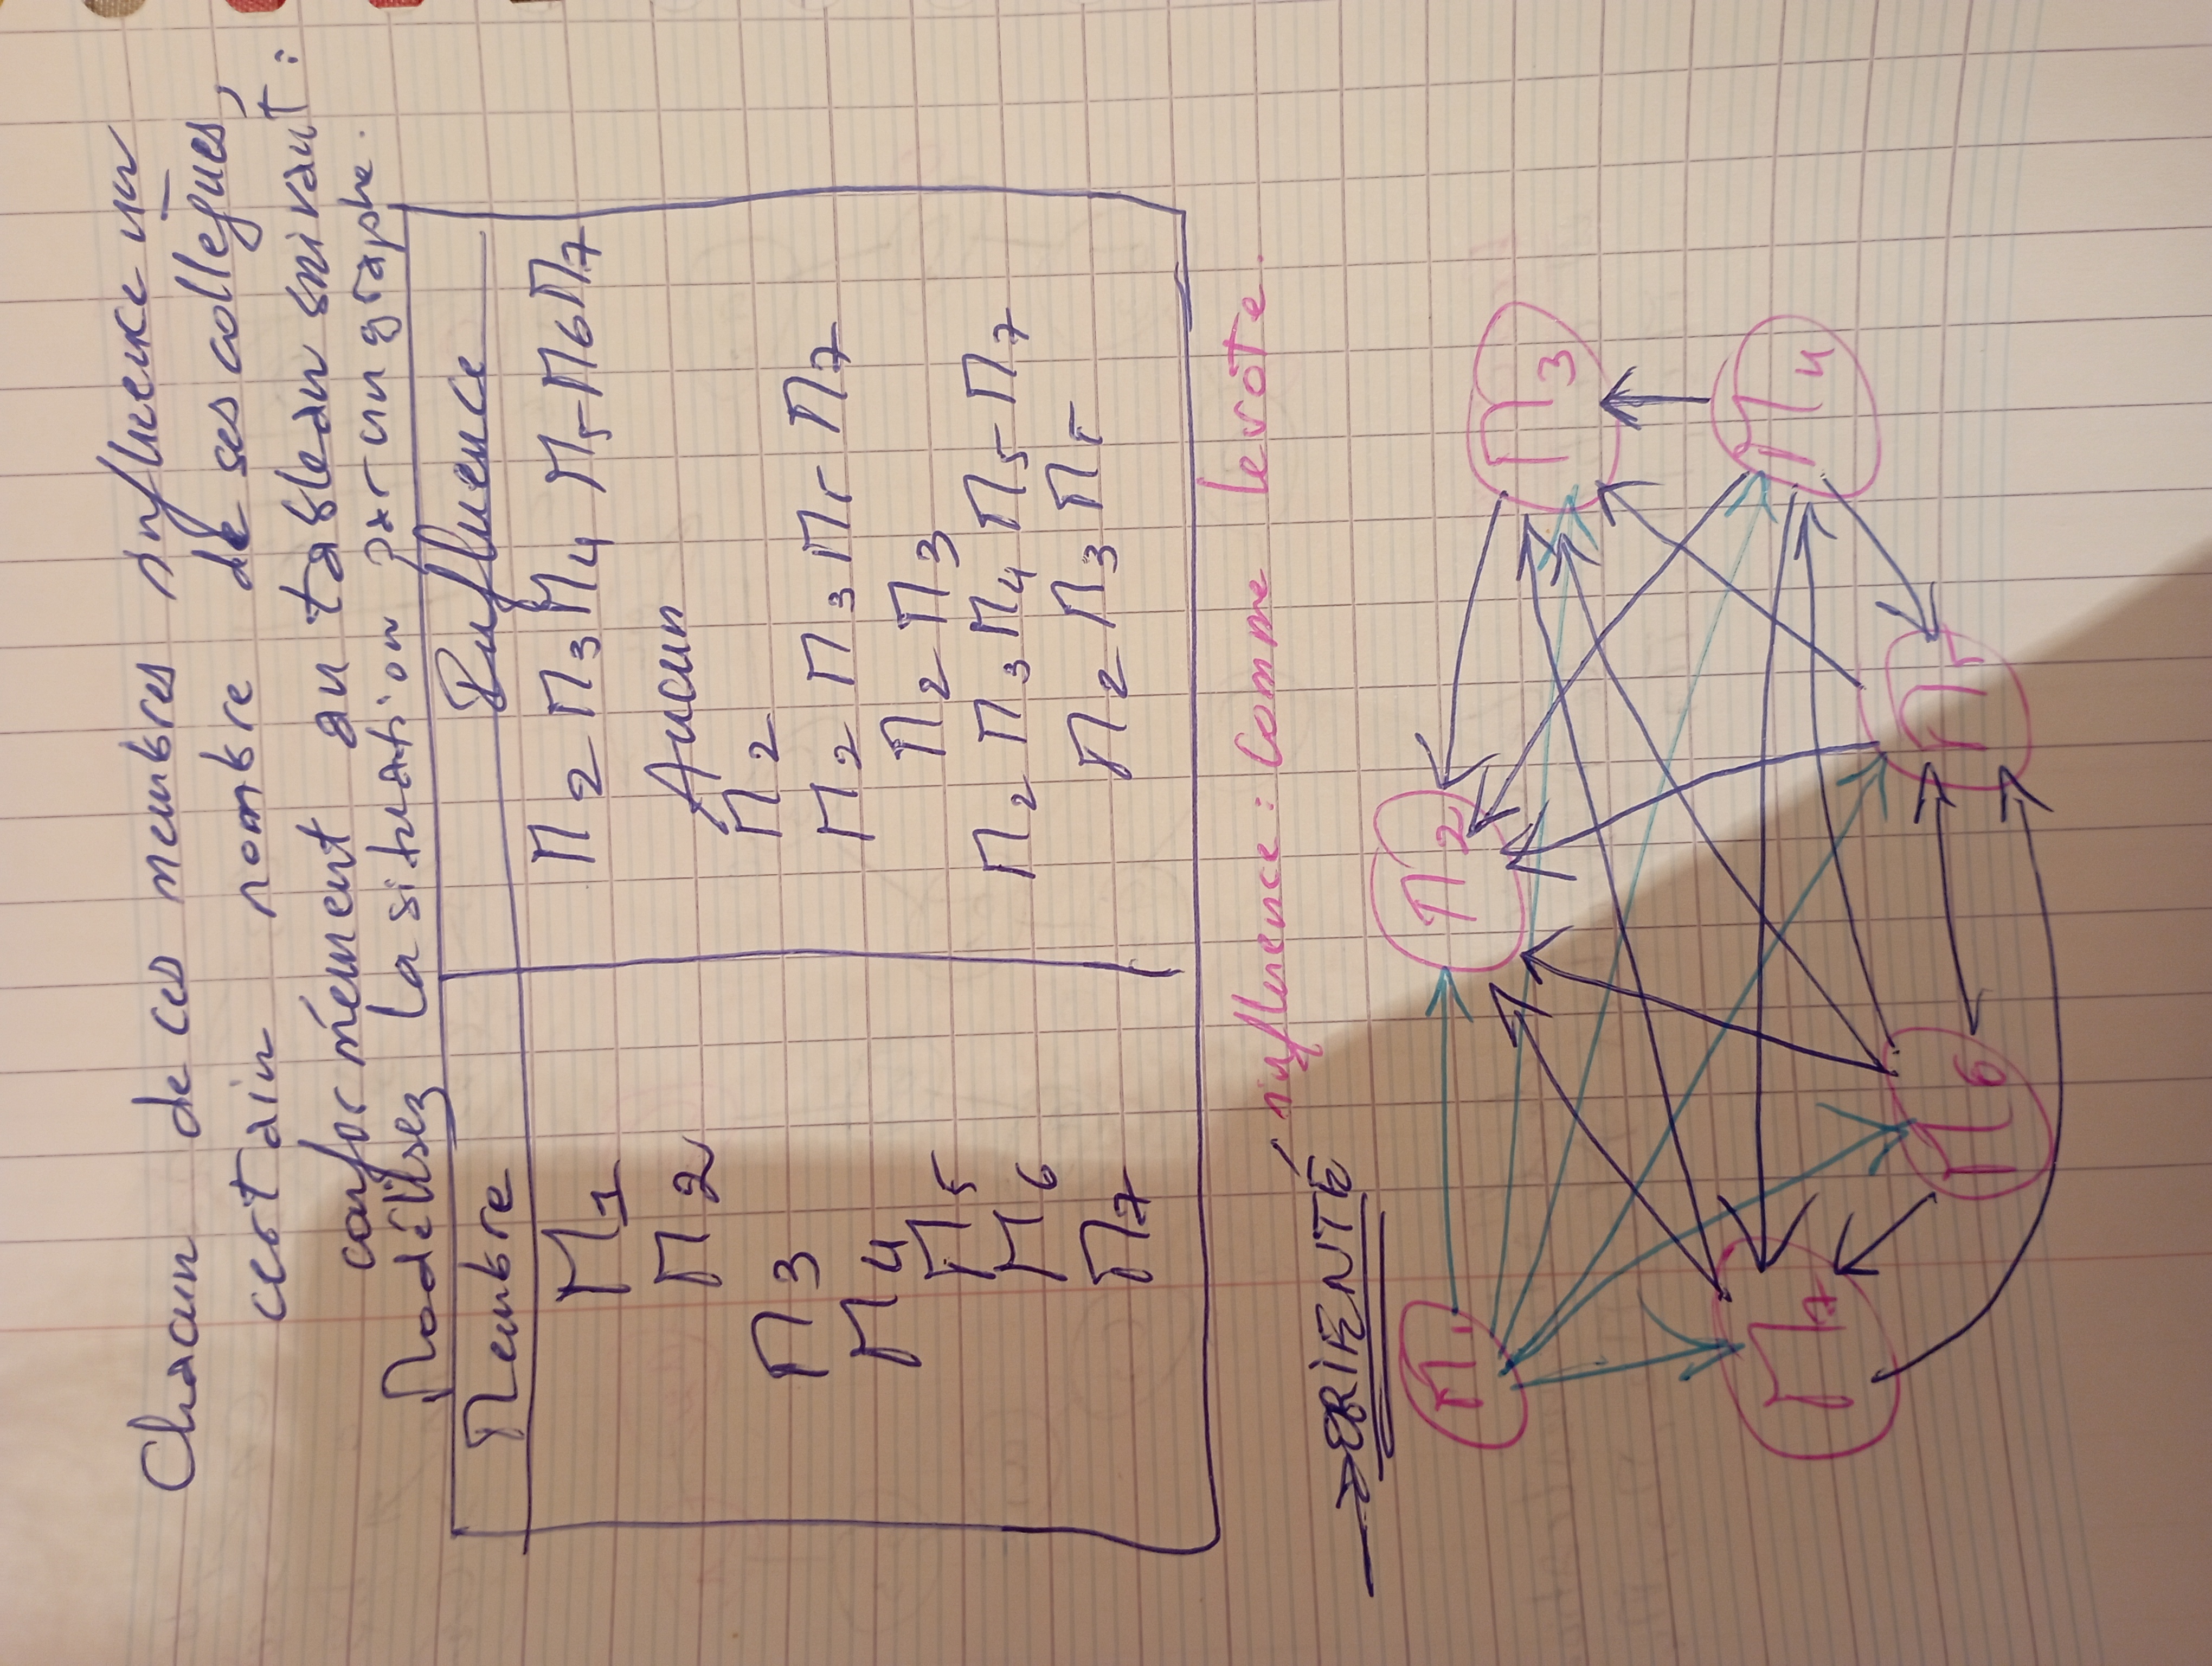 Chacun de ces membres influence un
certain nombre de ses collegues,
conformément au tableau suivant :
Modélisez la situation par un graphe.
Membre Influence
M1 M2 M3 M4 M5 M6 M7
M2 Aucun
M3 M2
M4 M2 M3 M5 M7
M5 M2 M3
M6 M2 M3 M4 M5 M7
M7 M2 M3 M5
influence : Comme le vote.
→ ORIENTÉ
M1 M2
M3
M7 M4
M6 M5